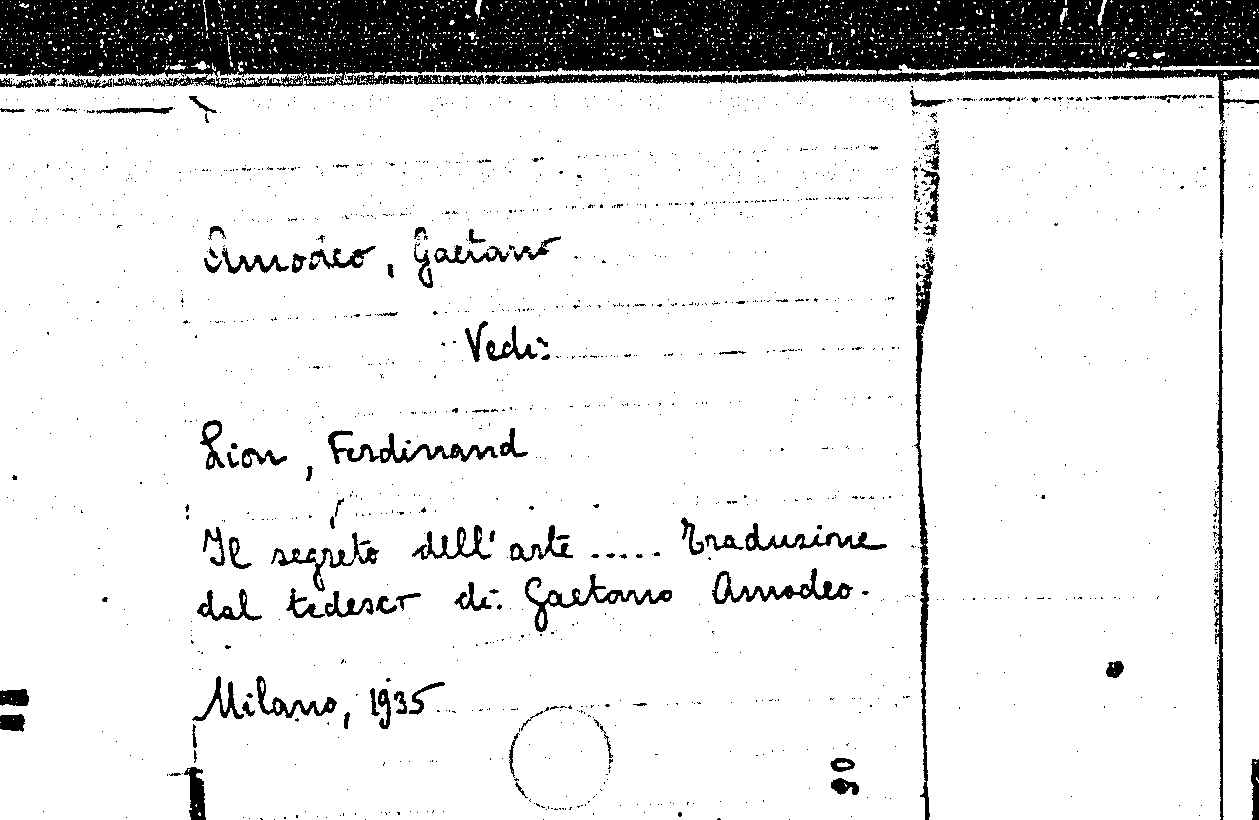 Amodeo, Gaetano
Vedi:
Lion, Ferdinand
Il segreto dell'arte ..... Traduzione
dal tedesco di Gaetano Amodeo.
Milano, 1935
90